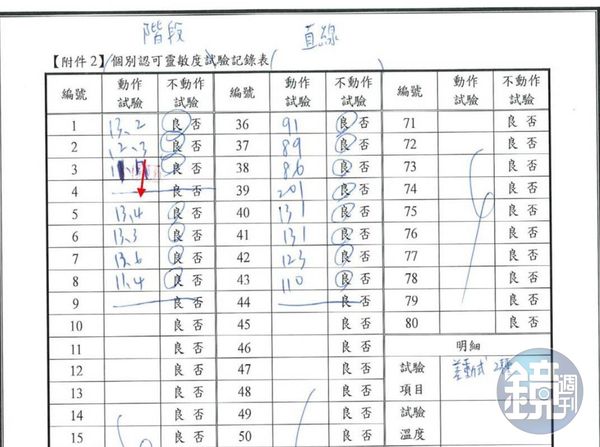 階段 直線
【附件2】(個別認可靈敏度試驗記錄表)
編號 動作試驗 不動作試驗 編號 動作試驗 不動作試驗 編號 動作試驗 不動作試驗
1 13.2 良 否 36 91 良 否 71 良 否
2 12.3 良 否 37 89 良 否 72 良 否
3 良 否 38 86 良 否 73 良 否
4 良 否 39 201 良 否 74 良 否
5 13.4 良 否 40 131 良 否 75 良 否
6 13.3 良 否 41 131 良 否 76 良 否
7 13.6 良 否 42 123 良 否 77 良 否
8 11.4 良 否 43 110 良 否 78 良 否
9 良 否 44 良 否 79 良 否
10 良 否 45 良 否 80 良 否
11 良 否 46 良 否 明細
12 良 否 47 良 否 試驗項目 差動式 2種
13 良 否 48 良 否
14 良 否 49 良 否 試驗溫度
15 良 否 50 良 否
鏡週刊